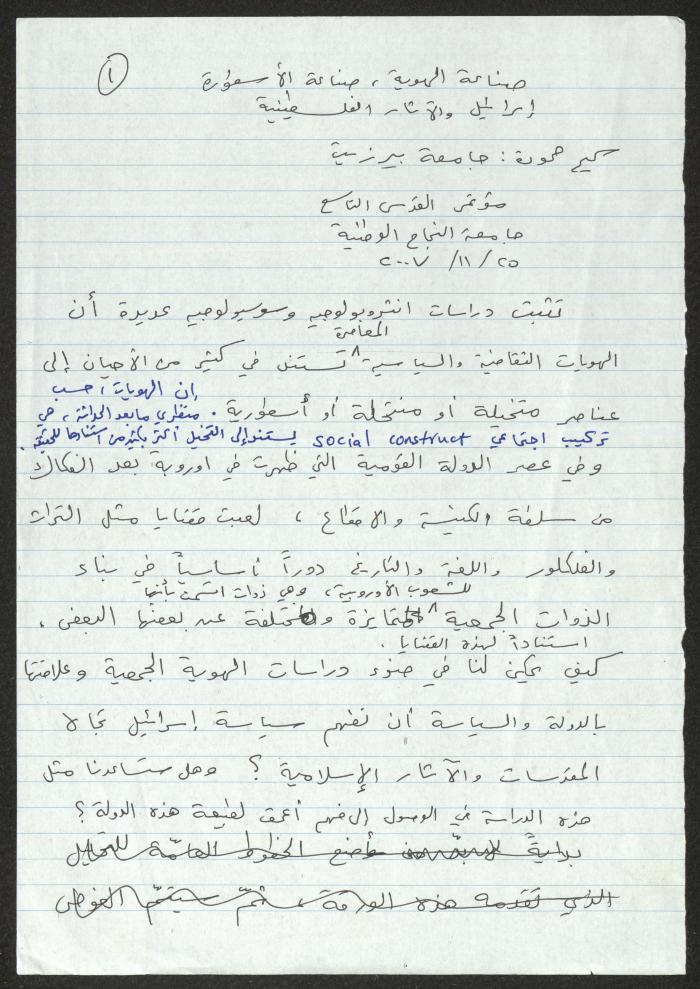 ١
صناعة الهوية، صناعة الأسطورة
إسرائيل والآثار الفلسطينية
سميح حمودة: جامعة بيرزيت
مؤتمر القدس التاسع
جامعة النجاح الوطنية
٢٥/ ١١/ ٢٠٠٧
تثبت دراسات انثروبولوجيه وسوسيولوجيه عديدة أن
المعاصرة
الهويات الثقافية والسياسية ^ تستند في كثير من الأحيان إلى
إن الهويات، حسب
عناصر متخيلة أو منتحلة أو أسطورية. منظري ما بعد الحداثة، هي
تركيب اجتماعي social construct يستند إلى التخيل أكثر بكثير من استنادها للحقيقة.
وفي عصر الدولة القومية التي ظهرت في اوروبة بعد الفكاك
من سلطة الكنيسة والاقطاع، لعبت قضايا مثل التراث
والفلكلور واللغة والتاريخ دوراً أساسياً في بناء
للشعوب الأوروبية، وهي ذوات اتسمت بأنها
الذوات الجمعية ^ متمايزة ومختلفة عن بعضها البعض،
استناداً لهذه القضايا.
كيف يمكن لنا في ضوء دراسات الهوية الجمعية وعلاقتها
بالدولة والسياسة أن نفهم سياسة إسرائيل تجاه
المقدسات والآثار الإسلامية؟ وهل ستساعدنا مثل
هذه الدراسة في الوصول إلى فهم أعمق لطبيعة هذه الدولة؟
بدايةً لا بدّ من وضع الخطوط العامّة للتحليل
الذي تقدمه هذه الورقة، ثمّ سيتمّ الخوض